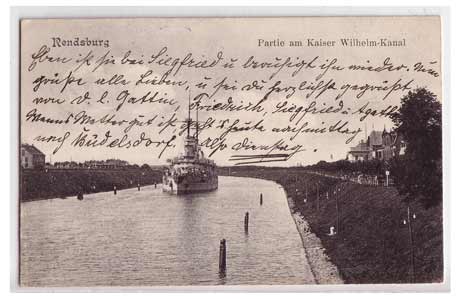 Rendsburg
Partie am Kaiser Wilhelm-Kanal
Eben ist sie bei Siegfried u beruhigt ihn wieder. Nun
grüße alle Lieben, u sei du herzlichst gegrüßt
von D. l. Gattin, Friedrich, Siegfried u. Agathe
Wenns Wetter gut ist heute nachmittag
nach Büdelsdorf, also Dienstag.